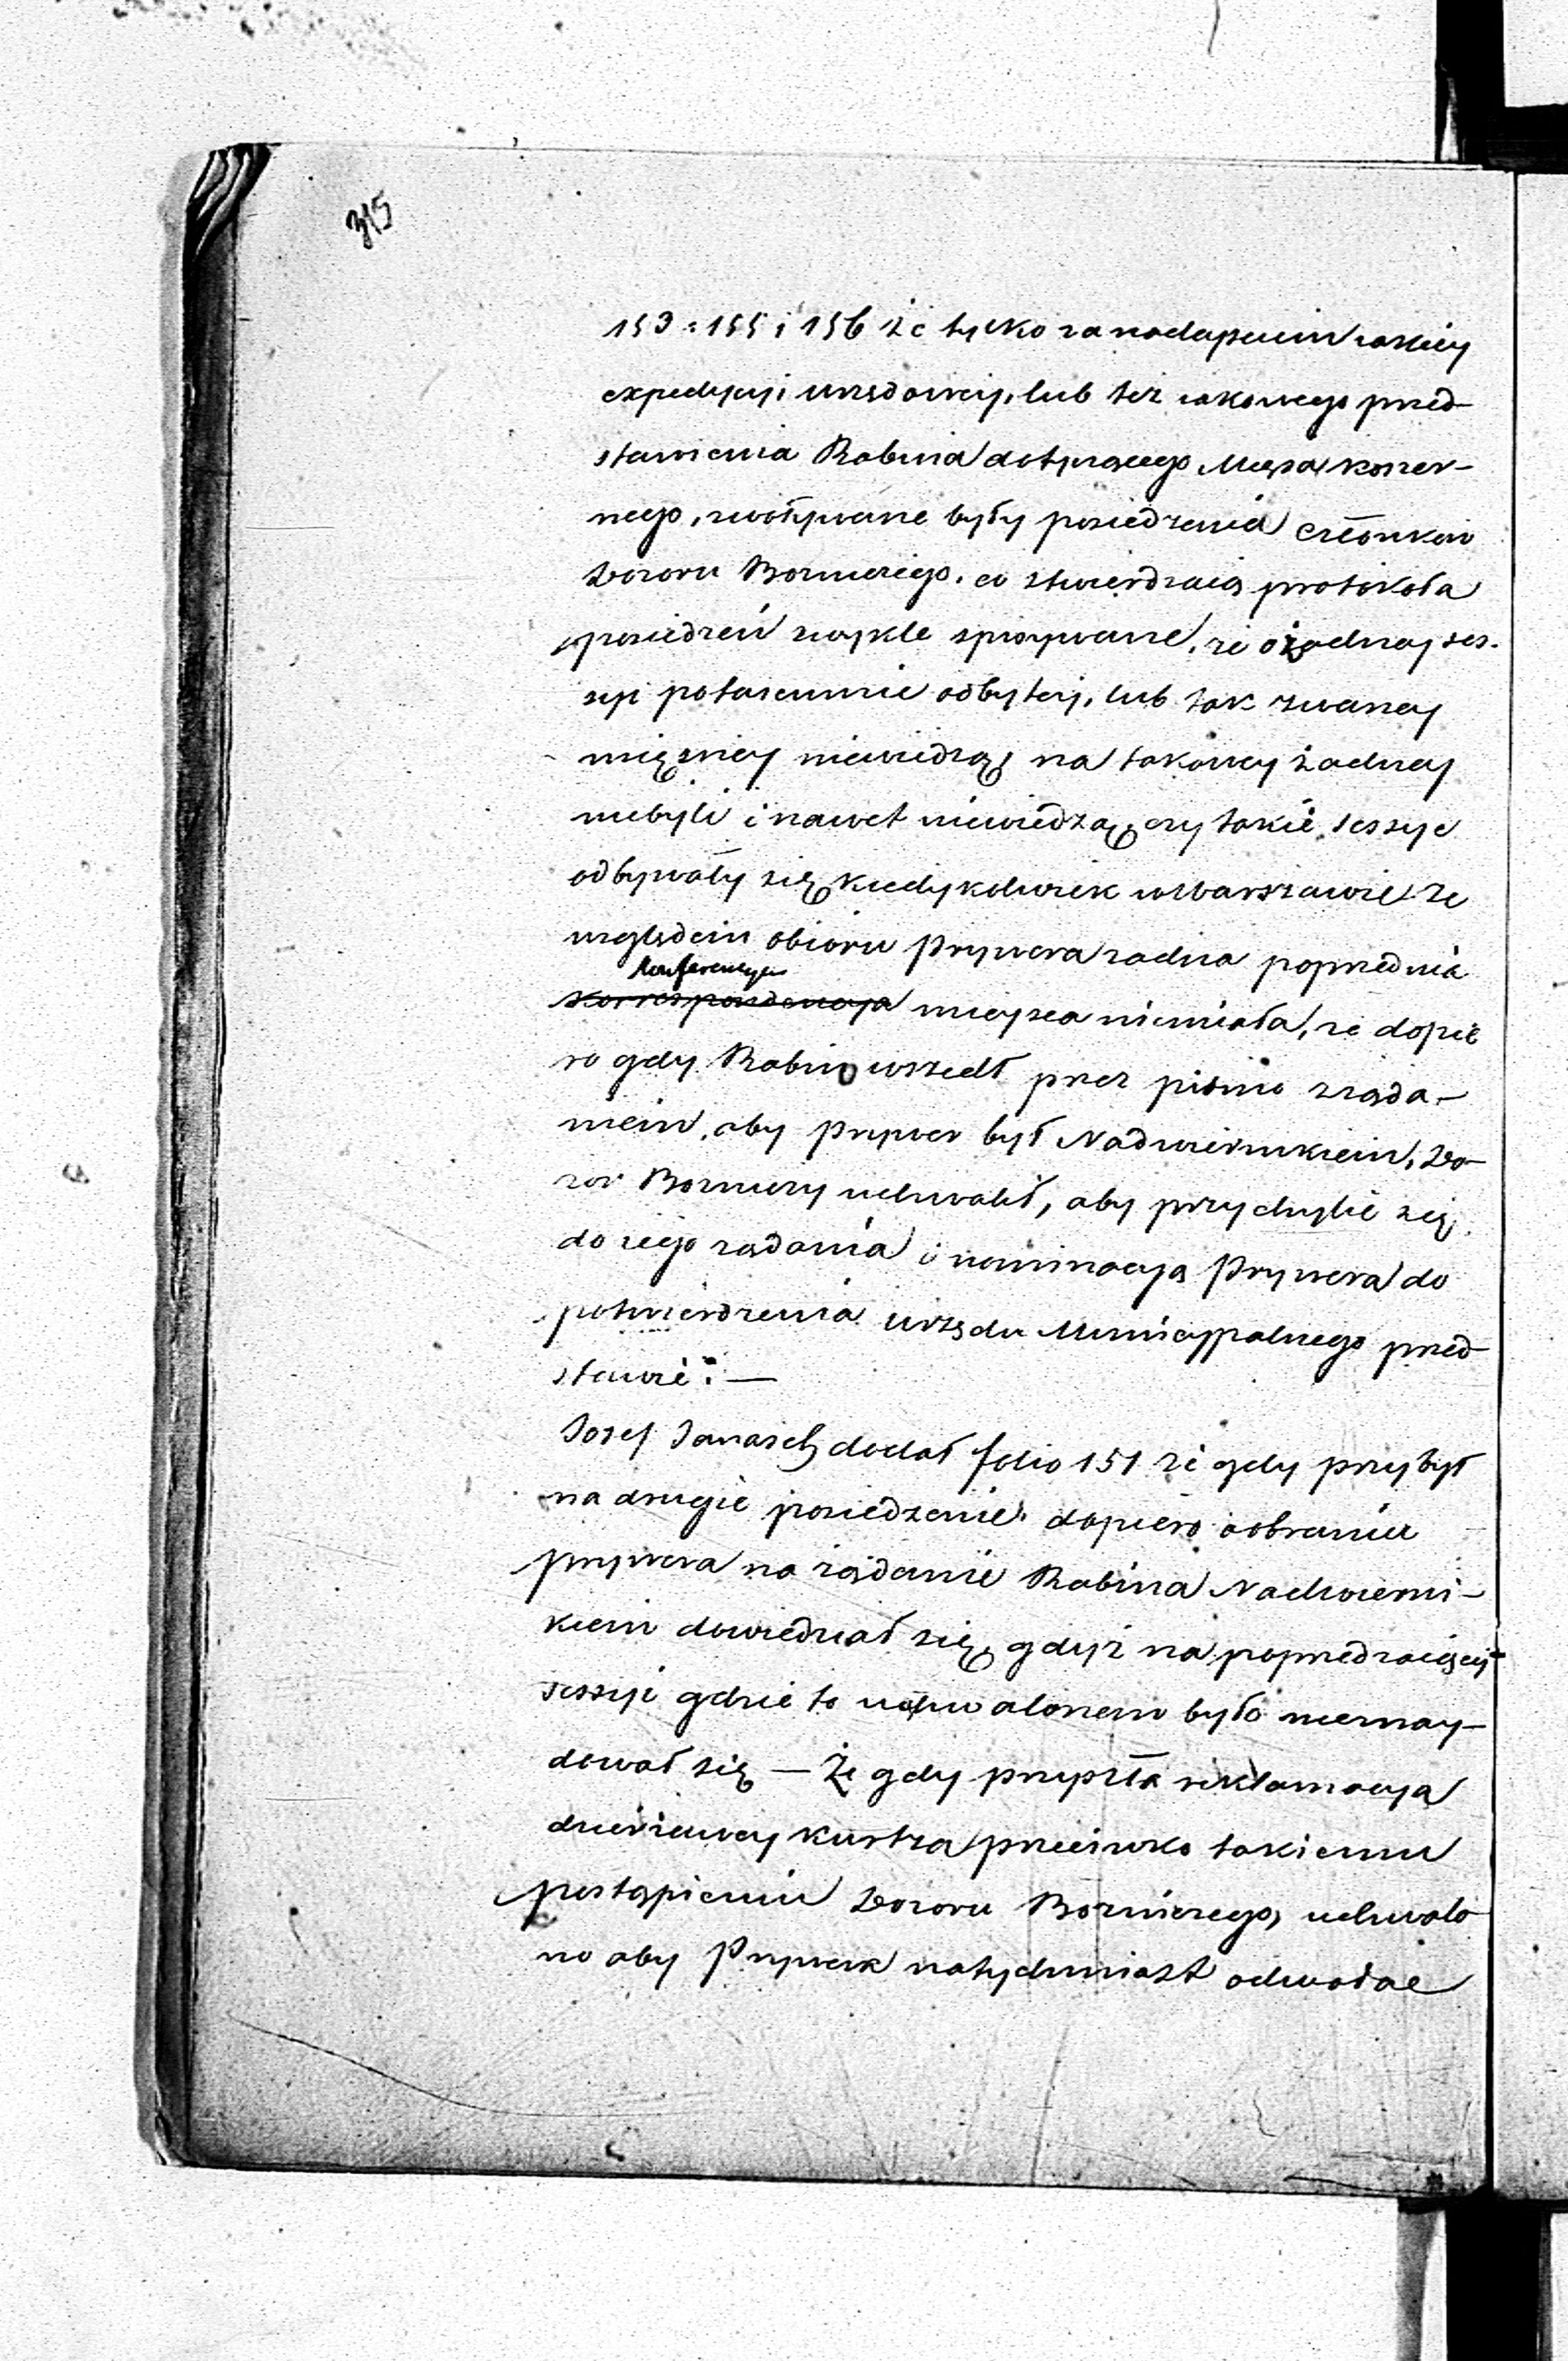 315
153: 155 i 156 że tylko za nadeyściem iakiey
expedycyi urzędowey, lub też iakowego przed-
stawienia Rabina dotyczącego Mięsa koszer-
nego, zwoływane były posiedzenia członków
Dozoru Bozniczego, co stwierdzaią protokoła
posiedzeń zwykle spisywane, że o żadney ses-
syi potaiemnie odbytey, lub tak zwaney
mięsney niewiedzą, na takowey żadney
niebyli i nawet niewiedzą, czy takie sessye
odbywały się kiedykolwiek w Warszawie że
względem obioru Prywera żadna poprzednia
konferencya
korrespondencya mieysca niemiała, że dopie
ro gdy Rabin wszedł przez pismo z żąda-
niem, aby Prywer był Nadwiernikiem, Do-
zor Bozniczy uchwalił, aby przychylić się
do iego żądania i nominacyą Prywera do
potwierdzenia urzędu Municypalnego przed
stawić: —
Jozef Janasch dodał folio 151 że gdy przybył
na drugie posiedzenie, dopiero o obraniu
prywera na żądanie Rabina Nadwierni-
kiem dowiedział się, gdyż na poprzedzaiącey
sessyi gdzie to uchwalonem było nieznay-
dował się — Że gdy przyszła reklamacya
dzierżawcy Kurtza przeciwko takiemu
postąpieniu Dozoru Bozniczego, uchwalo
no aby Prywera natychmiast odwołać